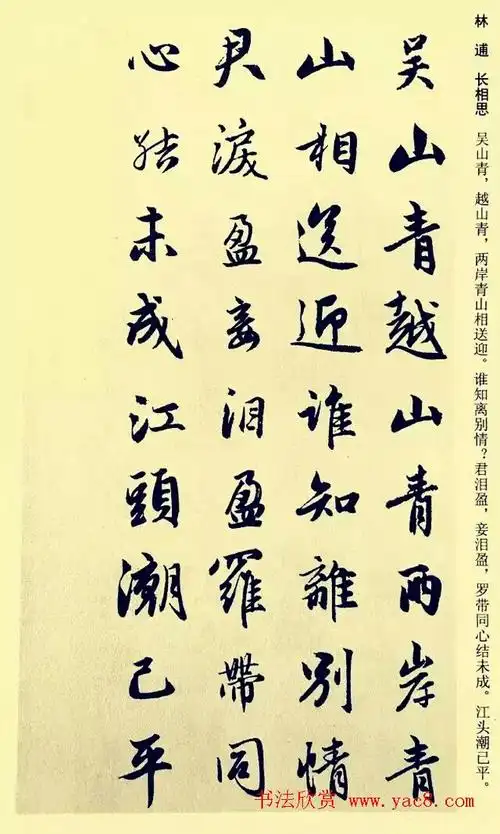 林逋 长相思 吴山青，越山青，两岸青山相送迎。谁知离别情？君泪盈，妾泪盈，罗带同心结未成。江头潮已平。
吴山青越山青兩岸青
山相送迎誰知離别情
君淚盈妾泪盈羅帶同
心結未成江頭潮已平
书法欣赏 www.yac8.com